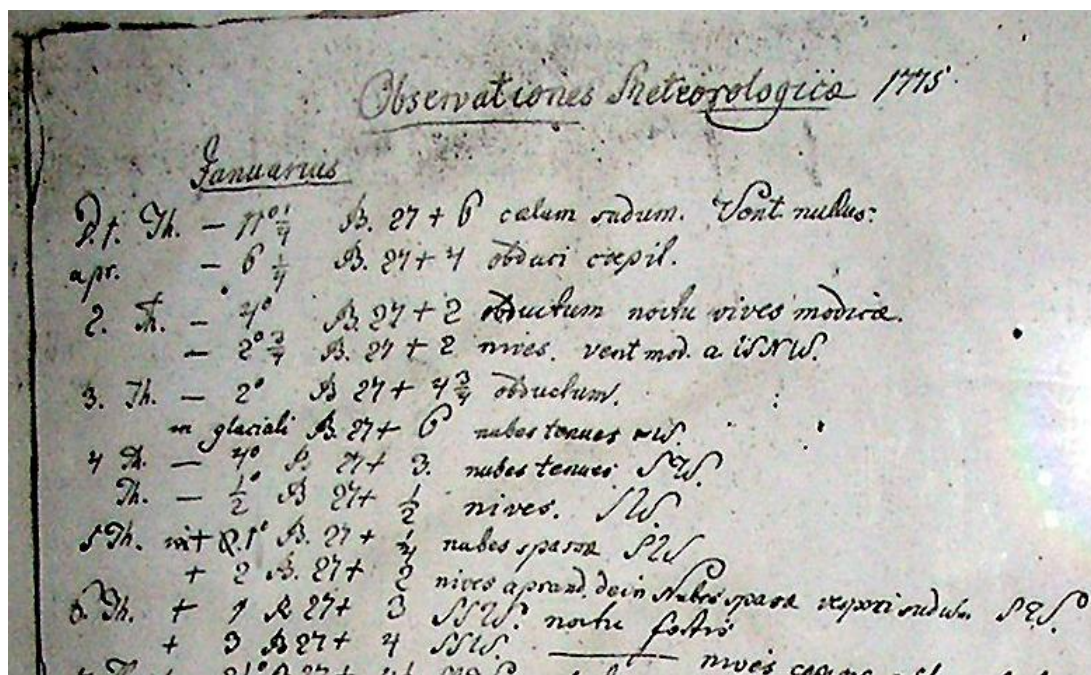 Observationes Meteorologicæ 1775.
Januarius
D. 1. Th. — 11° 1/4 B. 27 + 6 cœlum sudum. Vent. nullus.
a pr. — 6 1/4 B. 27 + 4 obduci cœpit.
2. Th. — 4° B. 27 + 2 obductum noctu nives modicæ.
— 2° 3/4 B. 27 + 2 nives. vent mod. a WNW.
3. Th. — 2° B 27 + 4 3/4 obductum.
in glaciali B. 27 + 6 nubes tenues
4 Th. — 4° B. 27 + 3. nubes tenues SW.
Th. — 1/2° B 27 + 1/2 nives. SW.
5 Th. 1° B. 27 + nubes sparsæ SW
+ 2 B. 27 + 2 nives a prand. dein Nubes sparsæ vesperi sudum SW.
6. Th. + 1 B 27 + 3 SSW. noctu
+ 3 B 27 + 4 SSW. nives